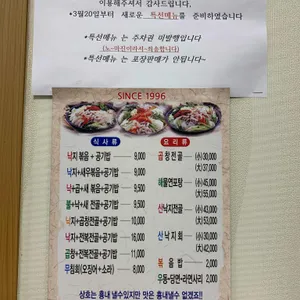 이용해주셔서 감사드립니다.
•3월20일부터 새로운 특선메뉴를 준비하였습니다
*특선메뉴 는 주차권 미발행입니다
(노-마진이라서-죄송합니다)
*특선메뉴 는 포장판매가 안됩니다~
SINCE 1996
식 사 류
낙지 볶음 + 공기밥 9,000
낙지+새우볶음+공기밥 9,000
낙+곱+새 볶음+공기밥 9,000
불+낙+새 전골+공기밥 9,000
낙지+곱창전골+공기밥 10,000
낙지+전복전골+공기밥 16,000
곱창+전복전골+공기밥 11,000
무침회(오징어+소라) 8,000
요 리 류
곱창전골 (小)30,000
(大)37,000
해물연포탕 (小)45,000
(大)55,000
산낙지전골 (小)43,000
(大)53,000
산 낙 지 회 (小)30,000
(大)42,000
볶 음 밥 2,000
우동•당면•라면사리 2,000
상호는 흉내 낼수있지만 맛은 흉내낼수 없겠죠!!